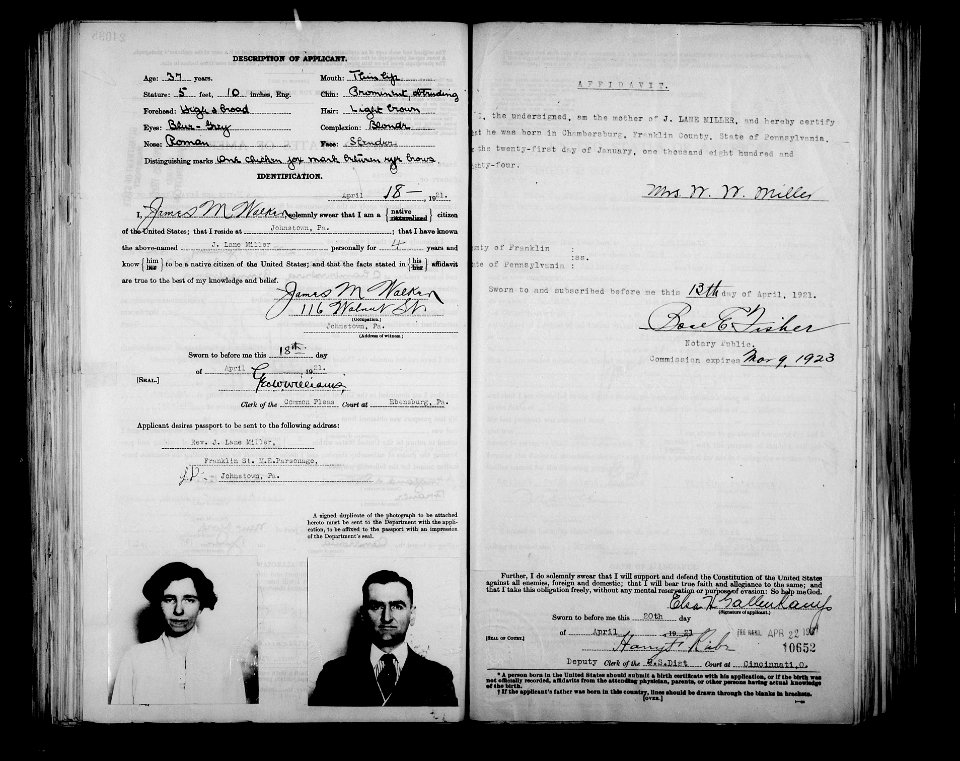 DESCRIPTION OF APPLICANT.
Age: 37 years.
Mouth: Thin lip
Stature: 5 feet, 10 inches, Eng.
Chin: Prominent, obtruding
Forehead: High & broad
Hair: Light brown
Eyes: Blue-Grey
Complexion: Blonde
Nose: Roman
Face: Slender
Distinguishing marks One chicken pox mark between eye brows
IDENTIFICATION.
April 18-, 1921.
I, James M Walker, solemnly swear that I am a {native naturalized} citizen
of the United States; that I reside at Johnstown, Pa.; that I have known
the above-named J. Lane Miller personally for 4 years and
know {him her} to be a native citizen of the United States; and that the facts stated in {his her} affidavit
are true to the best of my knowledge and belief.
James M Walker
116 Walnut St.
(Occupation.)
Johnstown, Pa.
(Address of witness.)
Sworn to before me this 18th day
of April, 1921.
[SEAL.]
Geo W Williams,
Clerk of the Common Pleas Court at Ebensburg, Pa.
Applicant desires passport to be sent to the following address:
Rev. J. Lane Miller,
Franklin St. M.E.Parsonage,
Johnstown, Pa.
A signed duplicate of the photograph to be attached
hereto must be sent to the Department with the appli-
cation, to be affixed to the passport with an impression
of the Department's seal.
AFFIDAVIT.
I, the undersigned, am the mother of J. LANE MILLER, and hereby certify
he was born in Chambersburg, Franklin County, State of Pennsylvania,
the twenty-first day of January, one thousand eight hundred and
Mrs W. W. Miller
of Franklin :
:ss.
of Pennsylvania :
Sworn to and subscribed before me this 13th day of April, 1921.
Rose E Fisher
Notary Public.
Commission expires Mar 9, 1923
Further, I do solemnly swear that I will support and defend the Constitution of the United States
against all enemies, foreign and domestic; that I will bear true faith and allegiance to the same; and
that I take this obligation freely, without any mental reservation or purpose of evasion: So help me God.
(Signature of applicant.)
Sworn to before me this 20th day
of April, 1921
APR 22
10652
[SEAL OF COURT.]
Deputy Clerk of the U.S.Dist Court at Cincinnati,O.
* A person born in the United States should submit a birth certificate with his application, or if the birth was
not officially recorded, affidavits from the attending physician, parents, or other persons having actual knowledge
of the birth.
† If the applicant's father was born in this country, lines should be drawn through the blanks in brackets.
[OVER.]